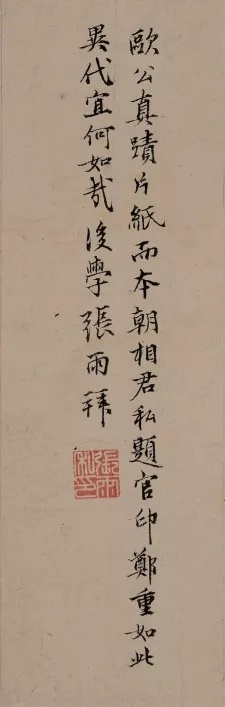 歐公真蹟片紙而本朝相君私題官印鄭重如此
異代宜何如哉後學張雨拜
張雨私印